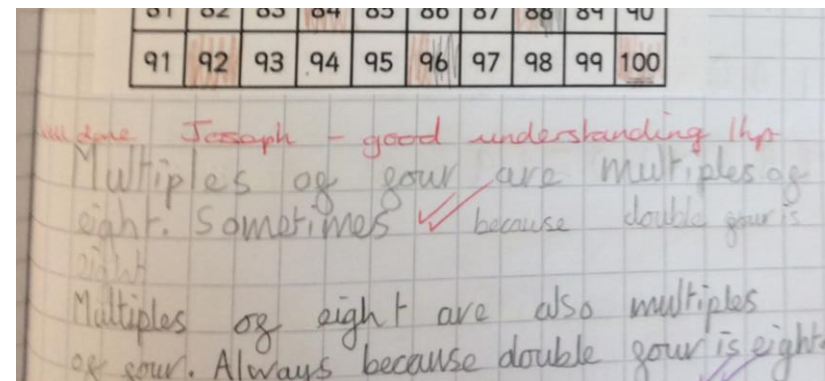 81 82 83 84 85 86 87 88 89 90
91 92 93 94 95 96 97 98 99 100
done Joseph - good understanding 1hp
Multiples of four are multiples of
eight. Sometimes because double four is
eight
Multiples of eight are also multiples
of four. Always because double four is eight.